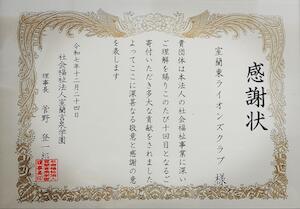 感謝状
室蘭東ライオンズクラブ 様
貴団体は本法人の社会福祉事業に深い
ご理解を賜りこのたび十回目となるご
寄付いただき多大な貢献をされました
よってここに深甚なる敬意と感謝の意
を表します
令和七年十二月二十四日
社会福祉法人室蘭言泉学園
理事長 菅野 登一郎